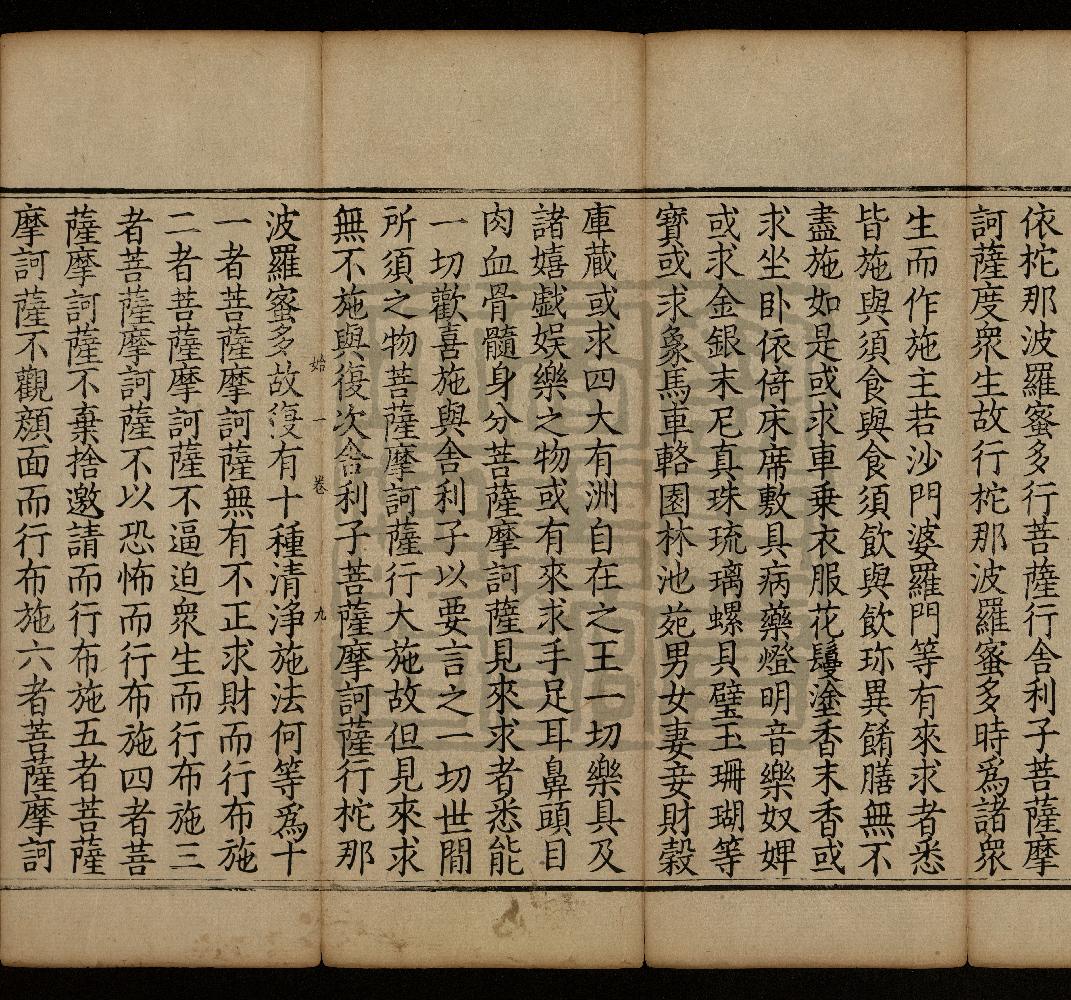 依柁那波羅蜜多行菩薩行舍利子菩薩摩
訶薩度衆生故行柁那波羅蜜多時爲諸衆
生而作施主若沙門婆羅門等有來求者悉
皆施與須食與食須飲與飲珎異餚膳無不
盡施如是或求車乗衣服花鬘塗香末香或
求坐卧依倚床席敷具病藥燈明音樂奴婢
或求金銀末尼真珠琉璃螺貝璧玉珊瑚等
寳或求象馬車輅園林池苑男女妻妾財穀
庫藏或求四大有洲自在之王一切樂具及
諸嬉戱娱樂之物或有來求手足耳鼻頭目
肉血骨髓身分菩薩摩訶薩見來求者悉能
一切歡喜施與舍利子以要言之一切世間
所須之物菩薩摩訶薩行大施故但見來求
無不施與復次舍利子菩薩摩訶薩行柁那
始 一 卷 九
波羅蜜多故復有十種清浄施法何等爲十
一者菩薩摩訶薩無有不正求財而行布施
二者菩薩摩訶薩不逼迫衆生而行布施三
者菩薩摩訶薩不以恐怖而行布施四者菩
薩摩訶薩不棄捨邀請而行布施五者菩薩
摩訶薩不觀顔面而行布施六者菩薩摩訶